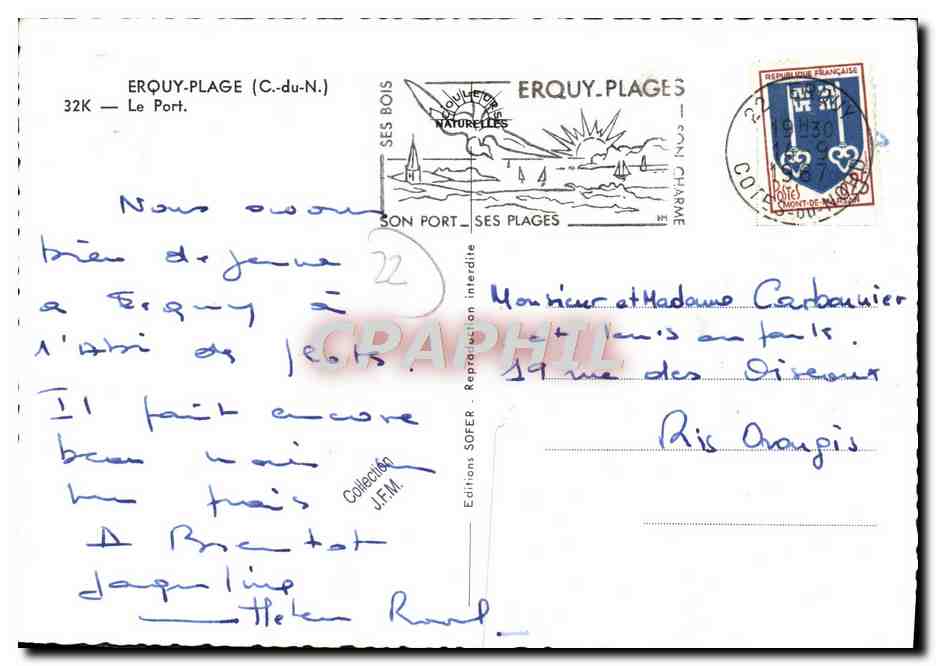 ERQUY-PLAGE (C.-du-N.)
32K — Le Port.
SES BOIS
COULEURS
NATURELLES
ERQUY-PLAGES
SON CHARME
SON PORT - SES PLAGES
REPUBLIQUE FRANÇAISE
POSTES
MONT-DE-MARSAN
19H30
COTES-DU-NORD
22
Nous avons
bien dejeuné
a Erquy à
l'Abri des flots.
Il fait encore
beau mais un
peu frais
A Bientot
Jacqueline
Helene Raoul
Collection
J.F.M.
Editions SOFER - Reproduction interdite
Monsieur et Madame Carbonnier
et leurs enfants.
19 rue des Oiseaux
Ris Orangis
CPAPHIL